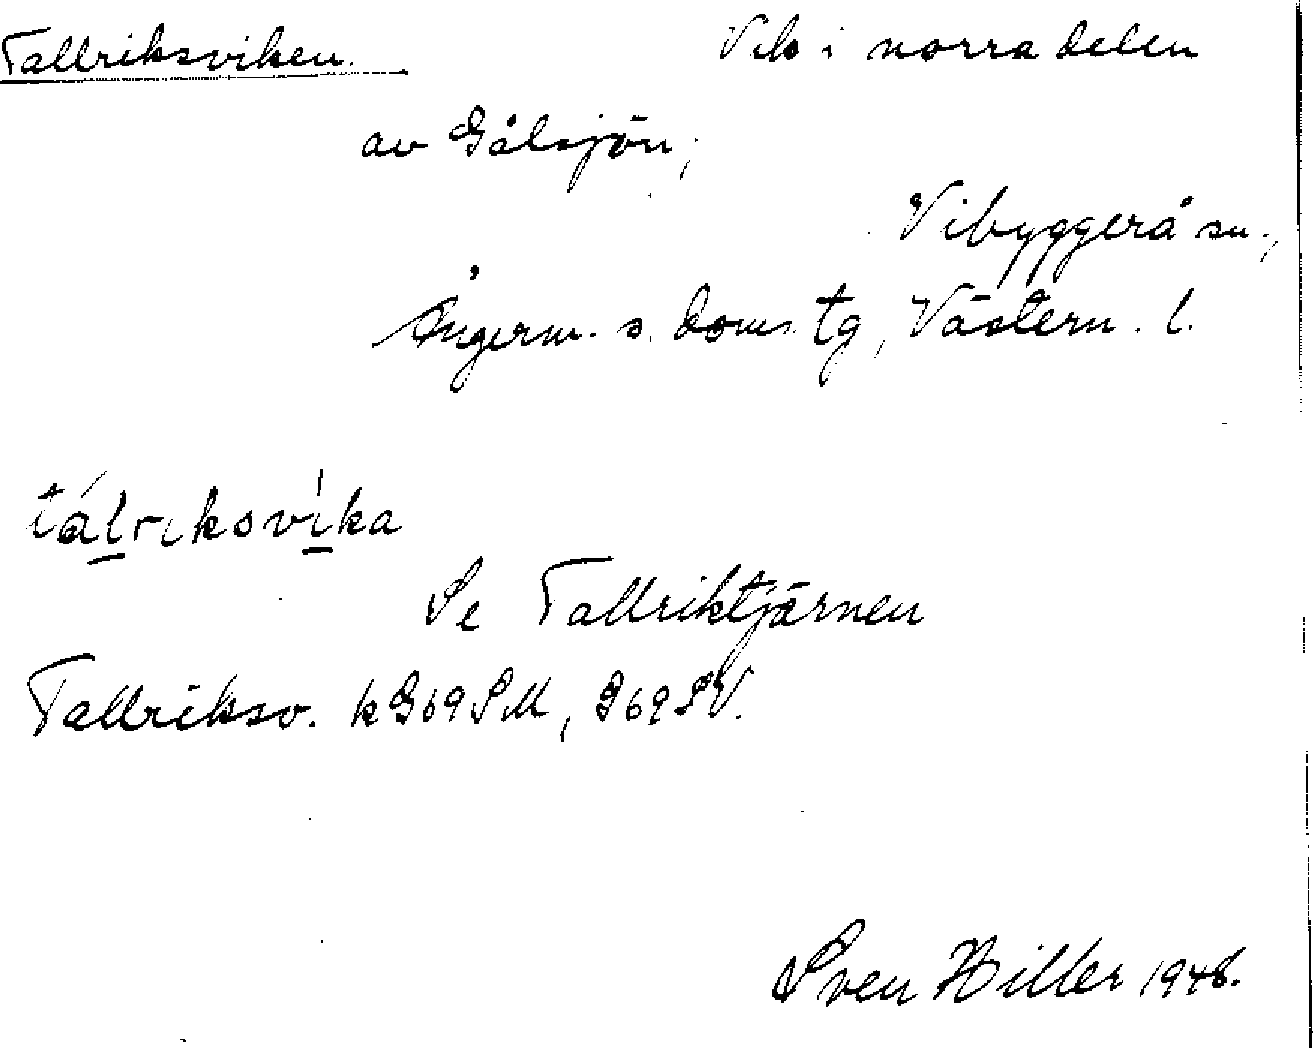 Tallriksviken. Vik i norra delen
av Gålsjön;
Vibyggerå sn.,
Ångerm. s. doms. tg, Västern. l.
tálriksvika
Se Tallriktjärnen
Tallriksv. k G69 SM, G69 SV.
Sven Hiller 1948.